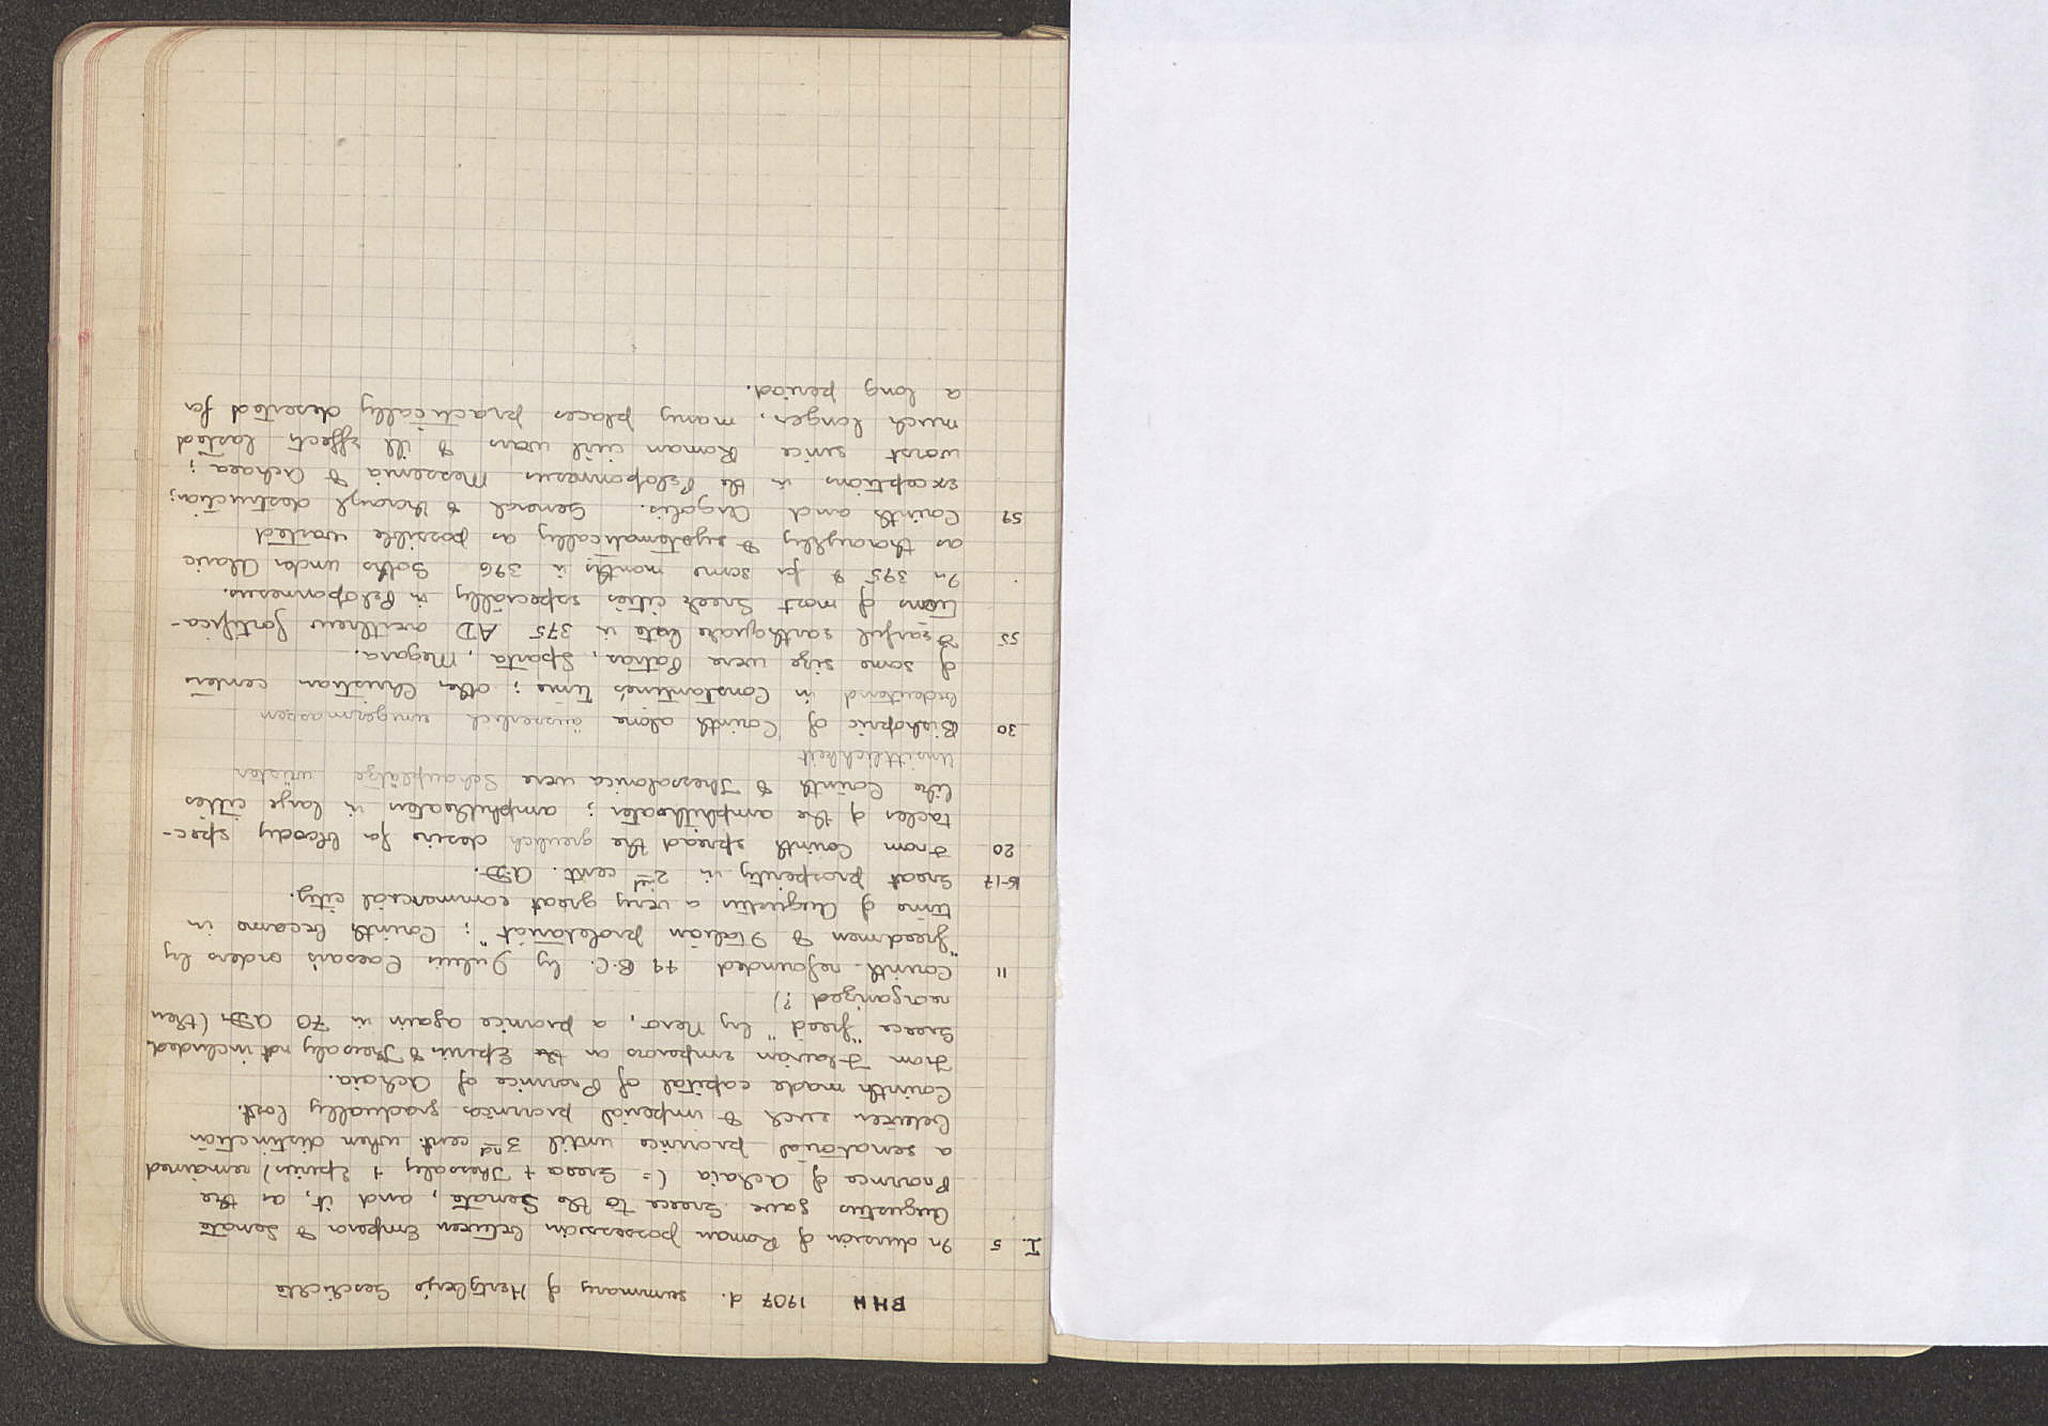 BHH 1907 d. summary of Hertzbergs Geschichte
I. 5 In division of Roman possession between Emperor & Senate
Augustus gave Greece to the Senate, and it, as the
Province of Achaia (= Greece + Thessaly + Epirus) remained
a senatorial province until 3rd cent. when distinction
between such & imperial provinces gradually lost.
Corinth made capital of Province of Achaia.
From Flavian emperors on Epirus & Thessaly not included.
Greece "freed" by Nero, a province again in 70 AD (then
reorganized?)
11 Corinth refounded 44 B.C. by Julius Caesar's orders by
"freedmen & Italian proletariat"; Corinth became in
time of Augustus a very great commercial city.
16-17 Great prosperity in 2nd cent. AD.
20 From Corinth spread the greulich desire for bloody spec-
tacles of the amphitheater; amphitheaters in large cities
like Corinth & Thessalonica were Schauplätze wüster
Unsittlichkeit
30 Bishopric of Corinth alone äusserlich einigermaszen
bedeutend in Constantine's time; other Christian centers
of some size were Patras, Sparta, Megara.
55 Fearful earthquake late in 375 AD overthrew fortifica-
tions of most Greek cities especially in Peloponnesus.
In 395 & for some months in 396 Goths under Alaric
as thoroughly & systematically as possible wasted
59 Corinth and Argolis. General & thorough destruction;
exceptions in the Peloponnesus Messenia & Achaea;
worst since Roman civil wars & ill effects lasted
much longer, many places practically deserted for
a long period.